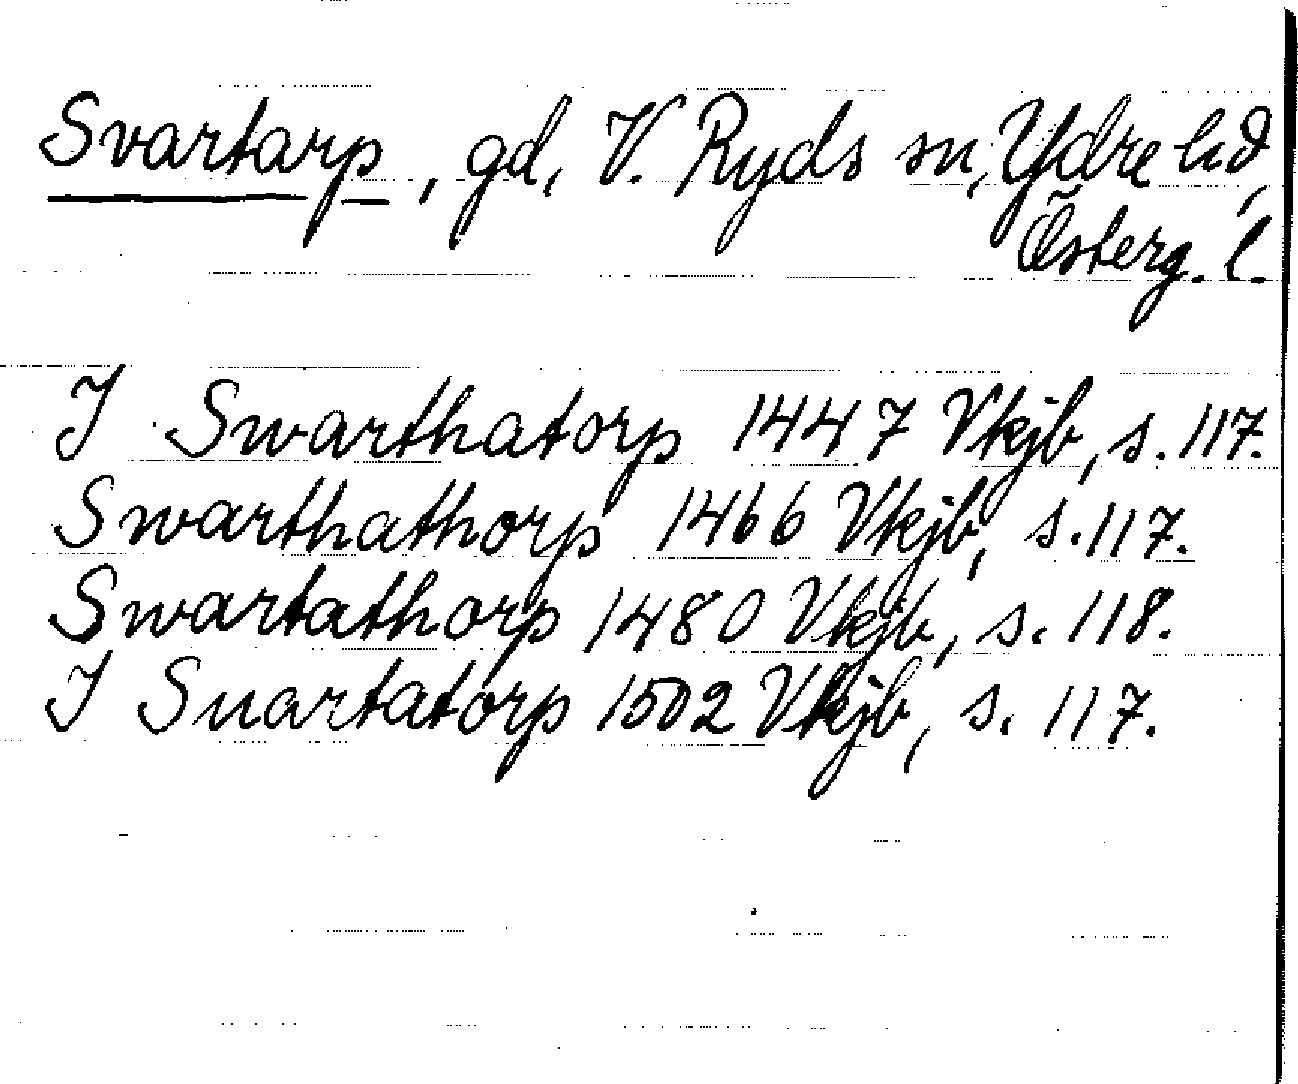 Svartarp, gd, V. Ryds sn, Ydre hd,
Österg. l.
I Swarthatorp 1447 Vkjb, s. 117.
Swarthathorp 1466 Vkjb, s. 117.
Swartathorp 1480 Vkjb, s. 118.
I Suartatorp 1502 Vkjb, s. 117.